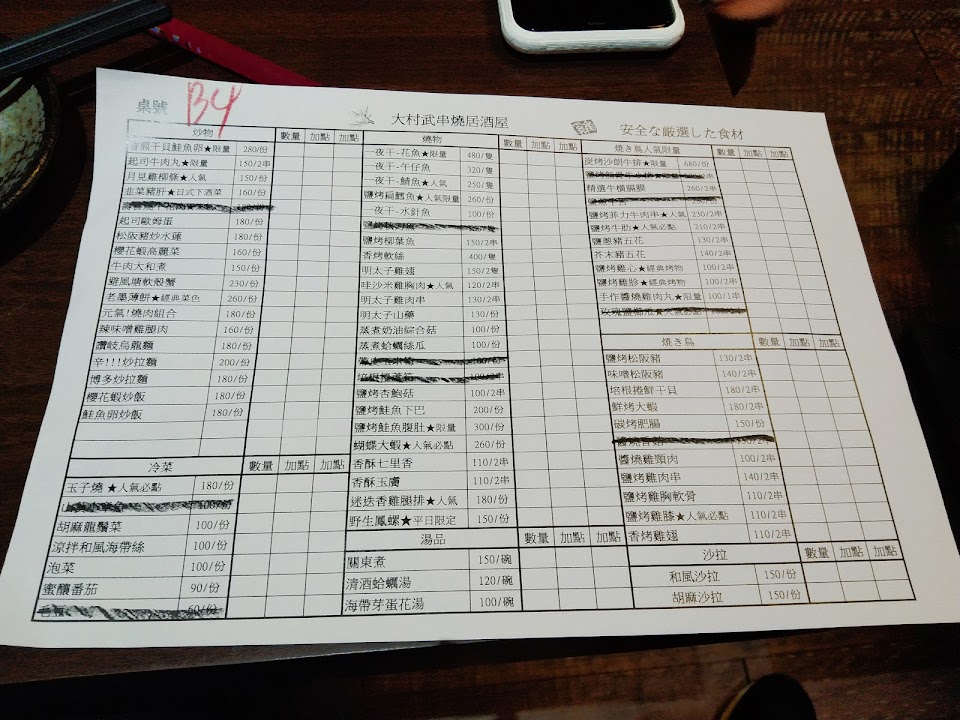 桌號 B4
大村武串燒居酒屋
安全な厳選した食材
炒物 數量 加點 加點
干貝鮭魚卵★限量 280/份
起司牛肉丸★限量 150/2串
月見雞柳條★人氣 150/份
韭菜豬肝★日式下酒菜 160/份
起司歐姆蛋 180/份
松阪豬炒水蓮 180/份
櫻花蝦高麗菜 160/份
牛肉大和煮 150/份
避風塘軟殼蟹 230/份
老墨薄餅★經典菜色 260/份
元氣!燒肉組合 180/份
辣味噌雞腿肉 160/份
讚岐烏龍麵 180/份
辛!!!炒拉麵 200/份
博多炒拉麵 180/份
櫻花蝦炒飯 180/份
鮭魚卵炒飯 180/份
冷菜 數量 加點 加點
玉子燒 ★人氣必點 180/份
胡麻龍鬚菜 100/份
涼拌和風海帶絲 100/份
泡菜 100/份
蜜釀番茄 90/份
60/份
燒物 數量 加點 加點
一夜干-花魚★限量 480/隻
一夜干-午仔魚 320/隻
一夜干-鯖魚★人氣 250/隻
鹽烤扁鱈魚★人氣限量 260/份
一夜干-水針魚 100/份
鹽烤柳葉魚 150/2串
香烤軟絲 400/隻
明太子雞翅 150/2隻
哇沙米雞胸肉★人氣 120/2串
明太子雞肉串 130/2串
明太子山藥 130/份
蒸煮奶油綜合菇 100/份
蒸煮蛤蠣絲瓜 100/份
鹽烤杏鮑菇 100/2串
鹽烤鮭魚下巴 200/份
鹽烤鮭魚腹肚★限量 300/份
蝴蝶大蝦★人氣必點 260/份
香酥七里香 110/2串
香酥玉膚 110/2串
迷迭香雞腿排★人氣 180/份
野生鳳螺★平日限定 150/份
湯品 數量 加點 加點
關東煮 150/碗
清酒蛤蠣湯 120/碗
海帶芽蛋花湯 100/碗
焼き鳥人氣限量 數量 加點 加點
炭烤沙朗牛排★限量 680/份
精選牛橫膈膜 260/2串
鹽烤菲力牛肉串★人氣 230/2串
鹽烤牛肋★人氣必點 210/2串
鹽蔥豬五花 130/2串
芥末豬五花 140/2串
鹽烤雞心★經典烤物 100/2串
鹽烤雞胗★經典烤物 100/2串
手作醬燒雞肉丸★限量 100/1串
焼き鳥 數量 加點 加點
鹽烤松阪豬 130/2串
味噌松阪豬 140/2串
培根捲鮮干貝 180/2串
鮮烤大蝦 180/2串
碳烤肥腸 150/份
醬燒雞頸肉 100/2串
鹽烤雞肉串 140/2串
鹽烤雞胸軟骨 110/2串
鹽烤雞膝★人氣必點 110/2串
香烤雞翅 110/2串
沙拉 數量 加點 加點
和風沙拉 150/份
胡麻沙拉 150/份